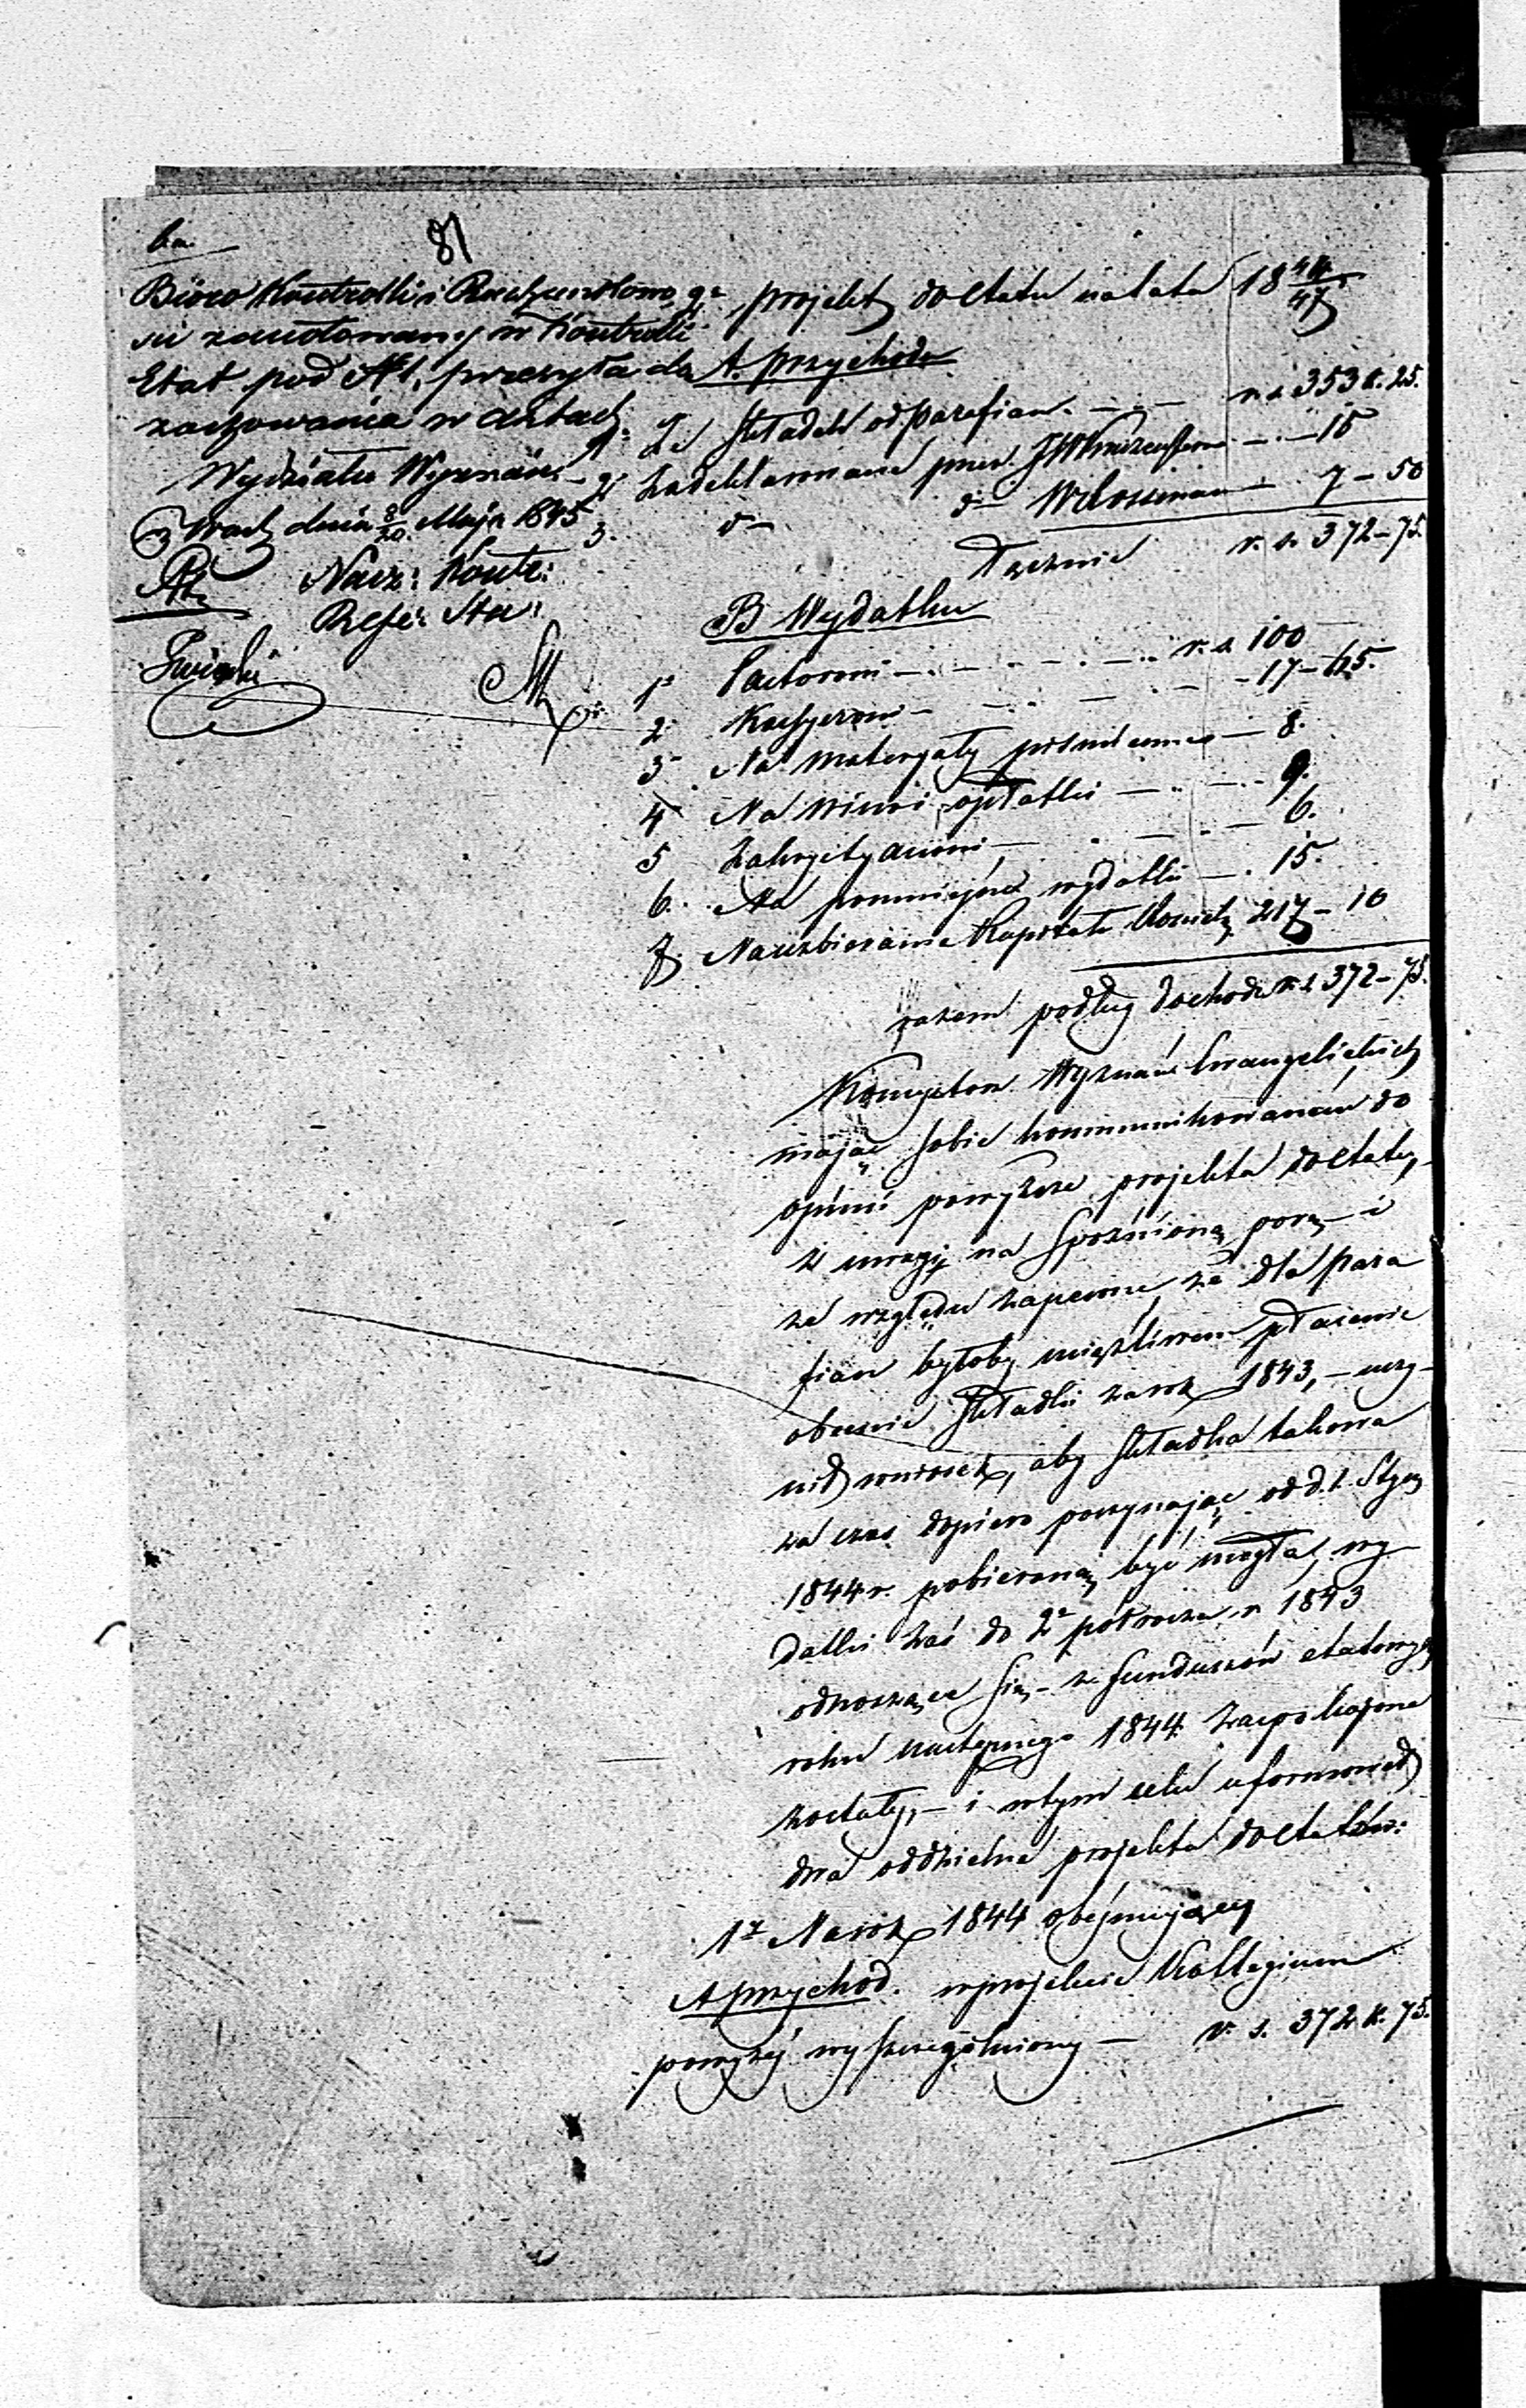 81
Bióro Kontrolli i Rachunkowo
zanotowany w Kontrolli
Etat pod № 1, przesyła do
zachowania w aktach
Wydziału Wyznań
dnia 8/20 Maja 1845
Nacz: Kont:
Refe: Sta:
projekt do etatu na lata 1844/47
A. przychodu
1. Ze składek od parafian r. s. 353 k. 25.
2. Zadeklarowane przez JW — 15
3. d° d° — 7 – 50
Łącznie r. s. 372 – 75.
B Wydatku
1° Pastorowi r. s. 100
2 Kassyerowi — 17 – 65.
3 Na materyały piśmienne — 8.
4 Na wino i opłatki — 9.
5 Zakrystyanowi — 6.
6. Na pomniejsze wydatki — 15.
7. Na uzbieranie Kapitału 217 – 10
razem podług dochodu r. s. 372 – 75.
Konsystorz Wyznań Ewangelickich
mając sobie kommunikowane do
opinii powyższe projekta do etatu,
z uwagi na spóźnioną porę – i
ze względu zapewne, że dla para
fian byłoby uciążliwem płacenie
obecnie składki za rok 1843, – uczy-
nił wniosek, aby składka takowa
za czas dopiero poczynając od d. 1. Stycz
1844 r. pobieraną być mogła, wy-
datki zaś do 2° półrocza r. 1843
odnoszące się – z funduszów etatowych
roku następnego 1844 zaspokojone
zostały, – i w tym celu uformował
dwa oddzielne projekta do etatów:
1° Na rok 1844 obejmujący
A przychod. w projekcie Kollegium
powyżej wyszczególniony — r. s. 372 k. 75.